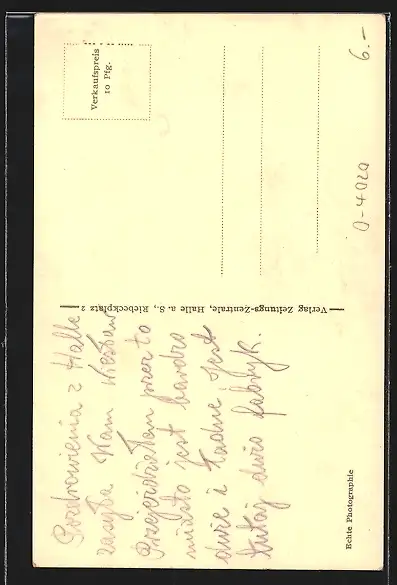 Pozdrowienia z Halle
zasyła Wam Wiesław
Przejeżdżałam przez to
miasto jest bardzo
duże i ładne jest
tutaj dużo fabryk.
Verlag Zeitungs-Zentrale, Halle a. S., Riebeckplatz 2
Verkaufspreis
10 Pfg.
Echte Photographie
6.-
0-4020